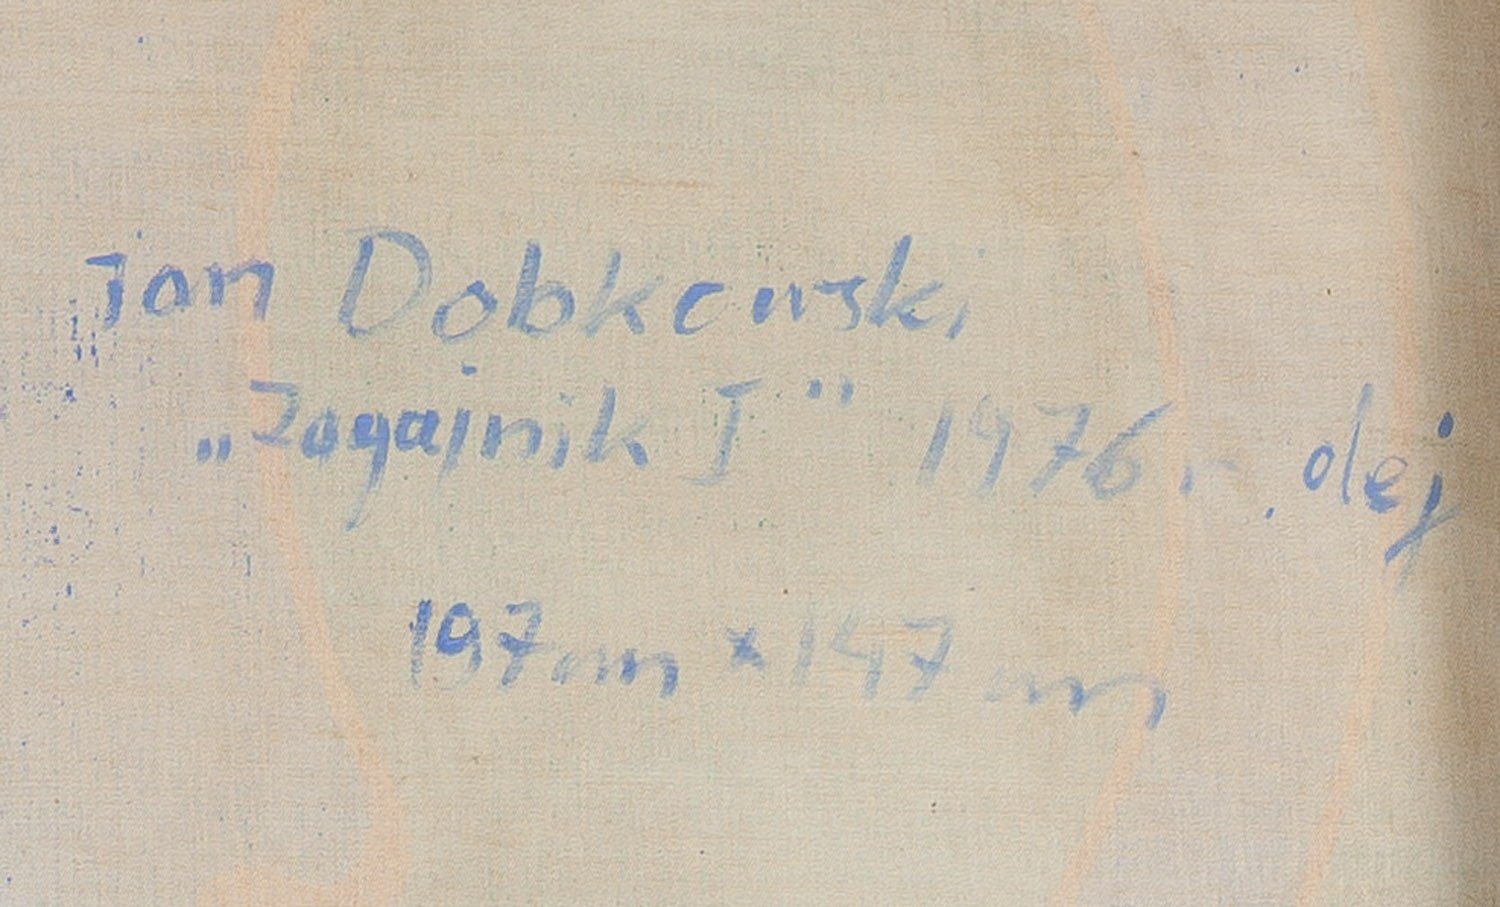 Jan Dobkowski
„Zagajnik I" 1976 r. olej
197cm x 147 cm